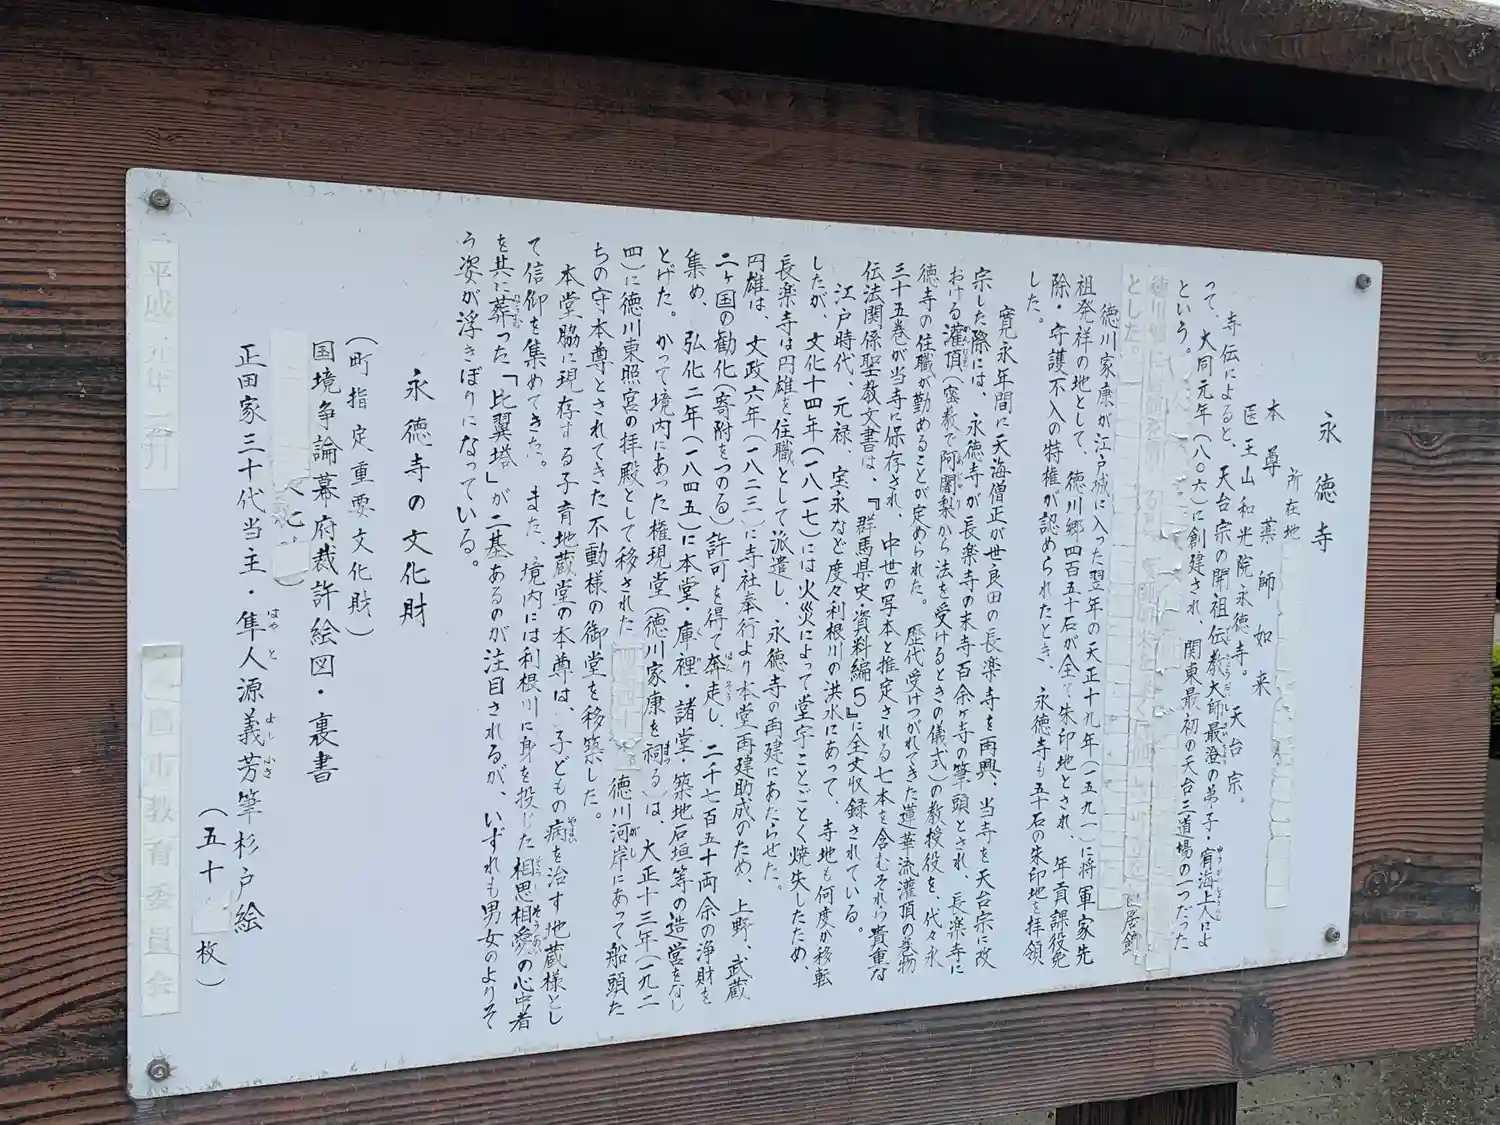 永徳寺
所在地
本尊 薬師如来
医王山和光院永徳寺。天台宗。
寺伝によると、天台宗の開祖伝教大師最澄の弟子・宥海上人によ
って、大同元年(八〇六)に創建され、関東最初の天台三道場の一つだった
という。
徳川郷に
とした。
徳川家康が江戸城に入った翌年の天正十九年(一五九一)に将軍家先
祖発祥の地として、徳川郷四百五十石が全て朱印地とされ、年貢課役免
除・守護不入の特権が認められたとき、永徳寺も五十石の朱印地を拝領
した。
寛永年間に天海僧正が世良田の長楽寺を再興、当寺を天台宗に改
宗した際には、永徳寺が長楽寺の末寺百余ヶ寺の筆頭とされ、長楽寺に
おける灌頂(密教で阿闍梨から法を受けるときの儀式)の教授役を、代々永
徳寺の住職が勤めることが定められた。歴代受けつがれてきた蓮華流灌頂の巻物
三十五巻が当寺に保存され、中世の写本と推定される七本を含むそれら貴重な
伝法関係聖教文書は、『群馬県史・資料編5』に全文収録されている。
江戸時代、元禄、宝永など度々利根川の洪水にあって、寺地も何度か移転
したが、文化十四年(一八一七)には火災によって堂宇ことごとく焼失したため、
長楽寺は円雄を住職として派遣し、永徳寺の再建にあたらせた。
円雄は、文政六年(一八二三)に寺社奉行より本堂再建助成のため、上野、武蔵
二ヶ国の勧化(寄附をつのる)許可を得て奔走し、二千七百五十両余の浄財を
集め、弘化二年(一八四五)に本堂・庫裡・諸堂・築地石垣等の造営をなし
とげた。かつて境内にあった権現堂(徳川家康を祠る)は、大正十三年(一九二
四)に徳川東照宮の拝殿として移された 徳川河岸にあって船頭た
ちの守本尊とされてきた不動様の御堂を移築した。
本堂脇に現存する子育地蔵堂の本尊は、子どもの病を治す地蔵様とし
て信仰を集めてきた。また、境内には利根川に身を投じた相思相愛の心中者
を共に葬った「比翼塔」が二基あるのが注目されるが、いずれも男女のよりそ
う姿が浮きぼりになっている。
永徳寺の文化財
(町指定重要文化財)
国境争論幕府裁許絵図・裏書
正田家三十代当主・隼人源義芳筆杉戸絵
はやと よしふさ
(五十 枚)
平成元年三月
市教育委員会